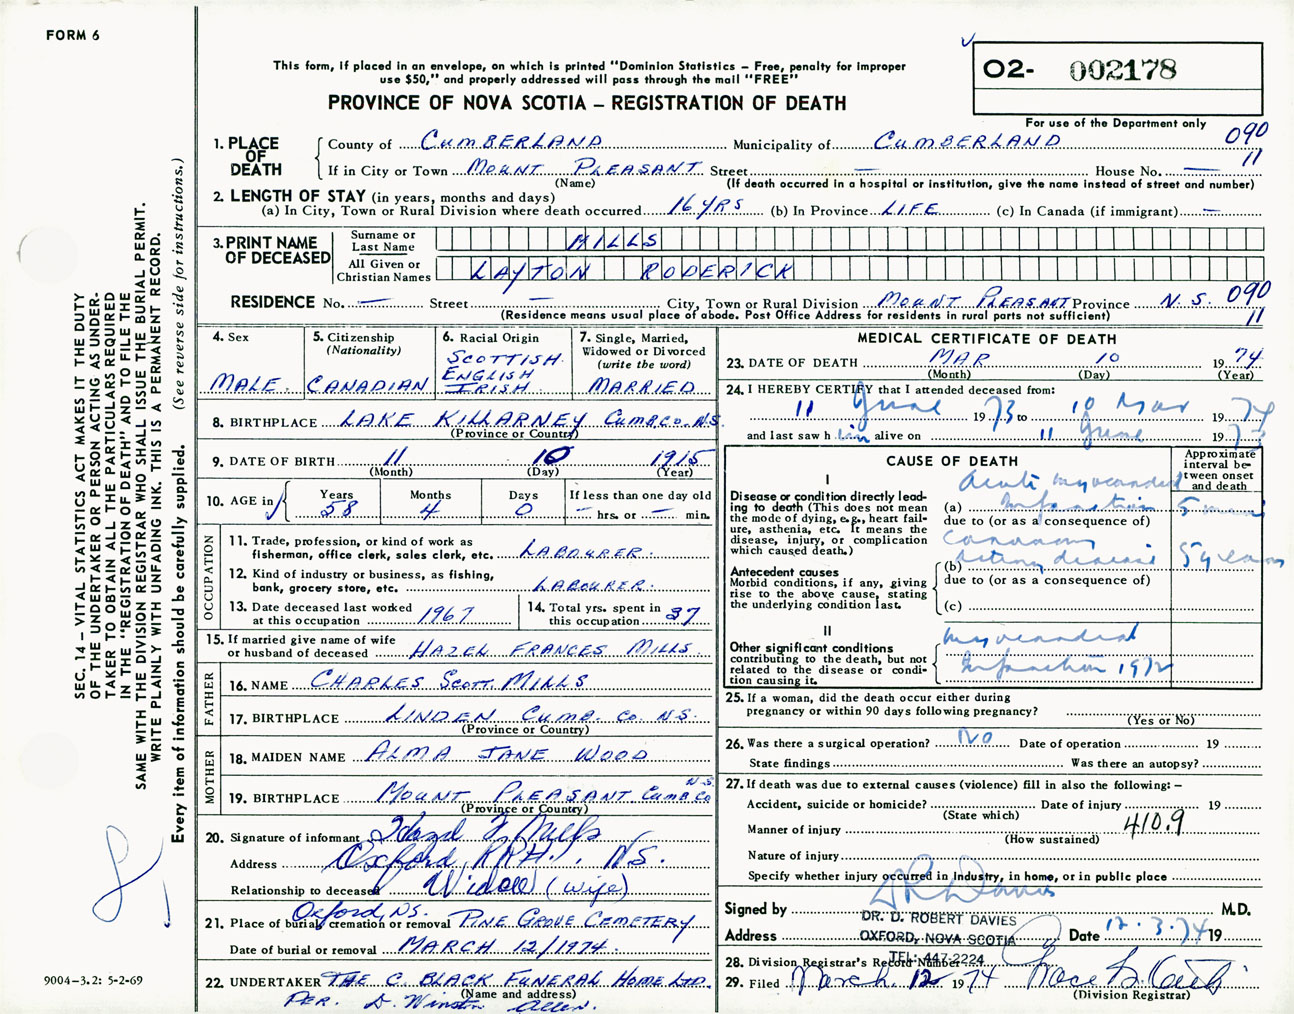 FORM 6
This form, if placed in an envelope, on which is printed "Dominion Statistics – Free, penalty for improper
use $50," and properly addressed will pass through the mail "FREE"
PROVINCE OF NOVA SCOTIA – REGISTRATION OF DEATH
O2- 002178
For use of the Department only
090
11
1. PLACE OF DEATH
County of CUMBERLAND Municipality of CUMBERLAND
If in City or Town MOUNT PLEASANT Street — House No. —
(Name) (If death occurred in a hospital or institution, give the name instead of street and number)
2. LENGTH OF STAY (in years, months and days)
(a) In City, Town or Rural Division where death occurred 16 YRS (b) In Province LIFE (c) In Canada (if immigrant) —
3. PRINT NAME OF DECEASED
Surname or Last Name MILLS
All Given or Christian Names LAYTON RODERICK
RESIDENCE No. — Street — City, Town or Rural Division MOUNT PLEASANT Province N.S. 090
11
(Residence means usual place of abode. Post Office Address for residents in rural parts not sufficient)
4. Sex
MALE
5. Citizenship
(Nationality)
CANADIAN
6. Racial Origin
SCOTTISH
ENGLISH
IRISH
7. Single, Married,
Widowed or Divorced
(write the word)
MARRIED
8. BIRTHPLACE LAKE KILLARNEY CUMB CO. N.S.
(Province or Country)
9. DATE OF BIRTH 11 10 1915
(Month) (Day) (Year)
10. AGE in
Years Months Days If less than one day old
58 4 0 — hrs. or — min.
OCCUPATION
11. Trade, profession, or kind of work as
fisherman, office clerk, sales clerk, etc. LABOURER.
12. Kind of industry or business, as fishing,
bank, grocery store, etc. LABOURER.
13. Date deceased last worked
at this occupation 1967
14. Total yrs. spent in
this occupation 37
15. If married give name of wife
or husband of deceased HAZEL FRANCES MILLS
FATHER
16. NAME CHARLES SCOTT MILLS
17. BIRTHPLACE LINDEN CUMB. CO. N.S.
(Province or Country)
MOTHER
18. MAIDEN NAME ALMA JANE WOOD
19. BIRTHPLACE MOUNT PLEASANT CUMB CO N.S.
(Province or Country)
20. Signature of informant Hazel F Mills
Address Oxford, RR#1, N.S.
Relationship to deceased Widow (wife)
Oxford, NS.
21. Place of burial, cremation or removal PINE GROVE CEMETERY
Date of burial or removal MARCH 12/1974.
22. UNDERTAKER THE C. BLACK FUNERAL HOME LTD.
(Name and address)
PER. D. Winston Allen.
MEDICAL CERTIFICATE OF DEATH
23. DATE OF DEATH MAR 10 1974
(Month) (Day) (Year)
24. I HEREBY CERTIFY that I attended deceased from:
11 June 1973 to 10 Mar 1974
and last saw him alive on 11 June 1973
CAUSE OF DEATH
Approximate
interval be-
tween onset
and death
I
Disease or condition directly lead-
ing to death (This does not mean
the mode of dying, e.g., heart fail-
ure, asthenia, etc. It means the
disease, injury, or complication
which caused death.)
Acute myocardial
(a) Infarction 5 min
due to (or as a consequence of)
Coronary
(b) Artery disease 5 years
due to (or as a consequence of)
(c)
Antecedent causes
Morbid conditions, if any, giving
rise to the above cause, stating
the underlying condition last.
II
Other significant conditions
contributing to the death, but not
related to the disease or condi-
tion causing it.
myocardial
Infarction 1972
25. If a woman, did the death occur either during
pregnancy or within 90 days following pregnancy?
(Yes or No)
26. Was there a surgical operation? No Date of operation 19
State findings Was there an autopsy?
27. If death was due to external causes (violence) fill in also the following: –
Accident, suicide or homicide? Date of injury 19
(State which)
Manner of injury 410.9
(How sustained)
Nature of injury
Specify whether injury occurred in Industry, in home, or in public place
Signed by D R Davies M.D.
DR. D. ROBERT DAVIES
Address OXFORD, NOVA SCOTIA Date 12.3.74 19
TEL: 447-2224
28. Division Registrar's Record Number
29. Filed March 12 1974
(Division Registrar)
SEC. 14 – VITAL STATISTICS ACT MAKES IT THE DUTY
OF THE UNDERTAKER OR PERSON ACTING AS UNDER-
TAKER TO OBTAIN ALL THE PARTICULARS REQUIRED
IN THE "REGISTRATION OF DEATH" AND TO FILE THE
SAME WITH THE DIVISION REGISTRAR WHO SHALL ISSUE THE BURIAL PERMIT.
WRITE PLAINLY WITH UNFADING INK. THIS IS A PERMANENT RECORD.
Every item of information should be carefully supplied. (See reverse side for instructions.)
9004–3.2: 5-2-69